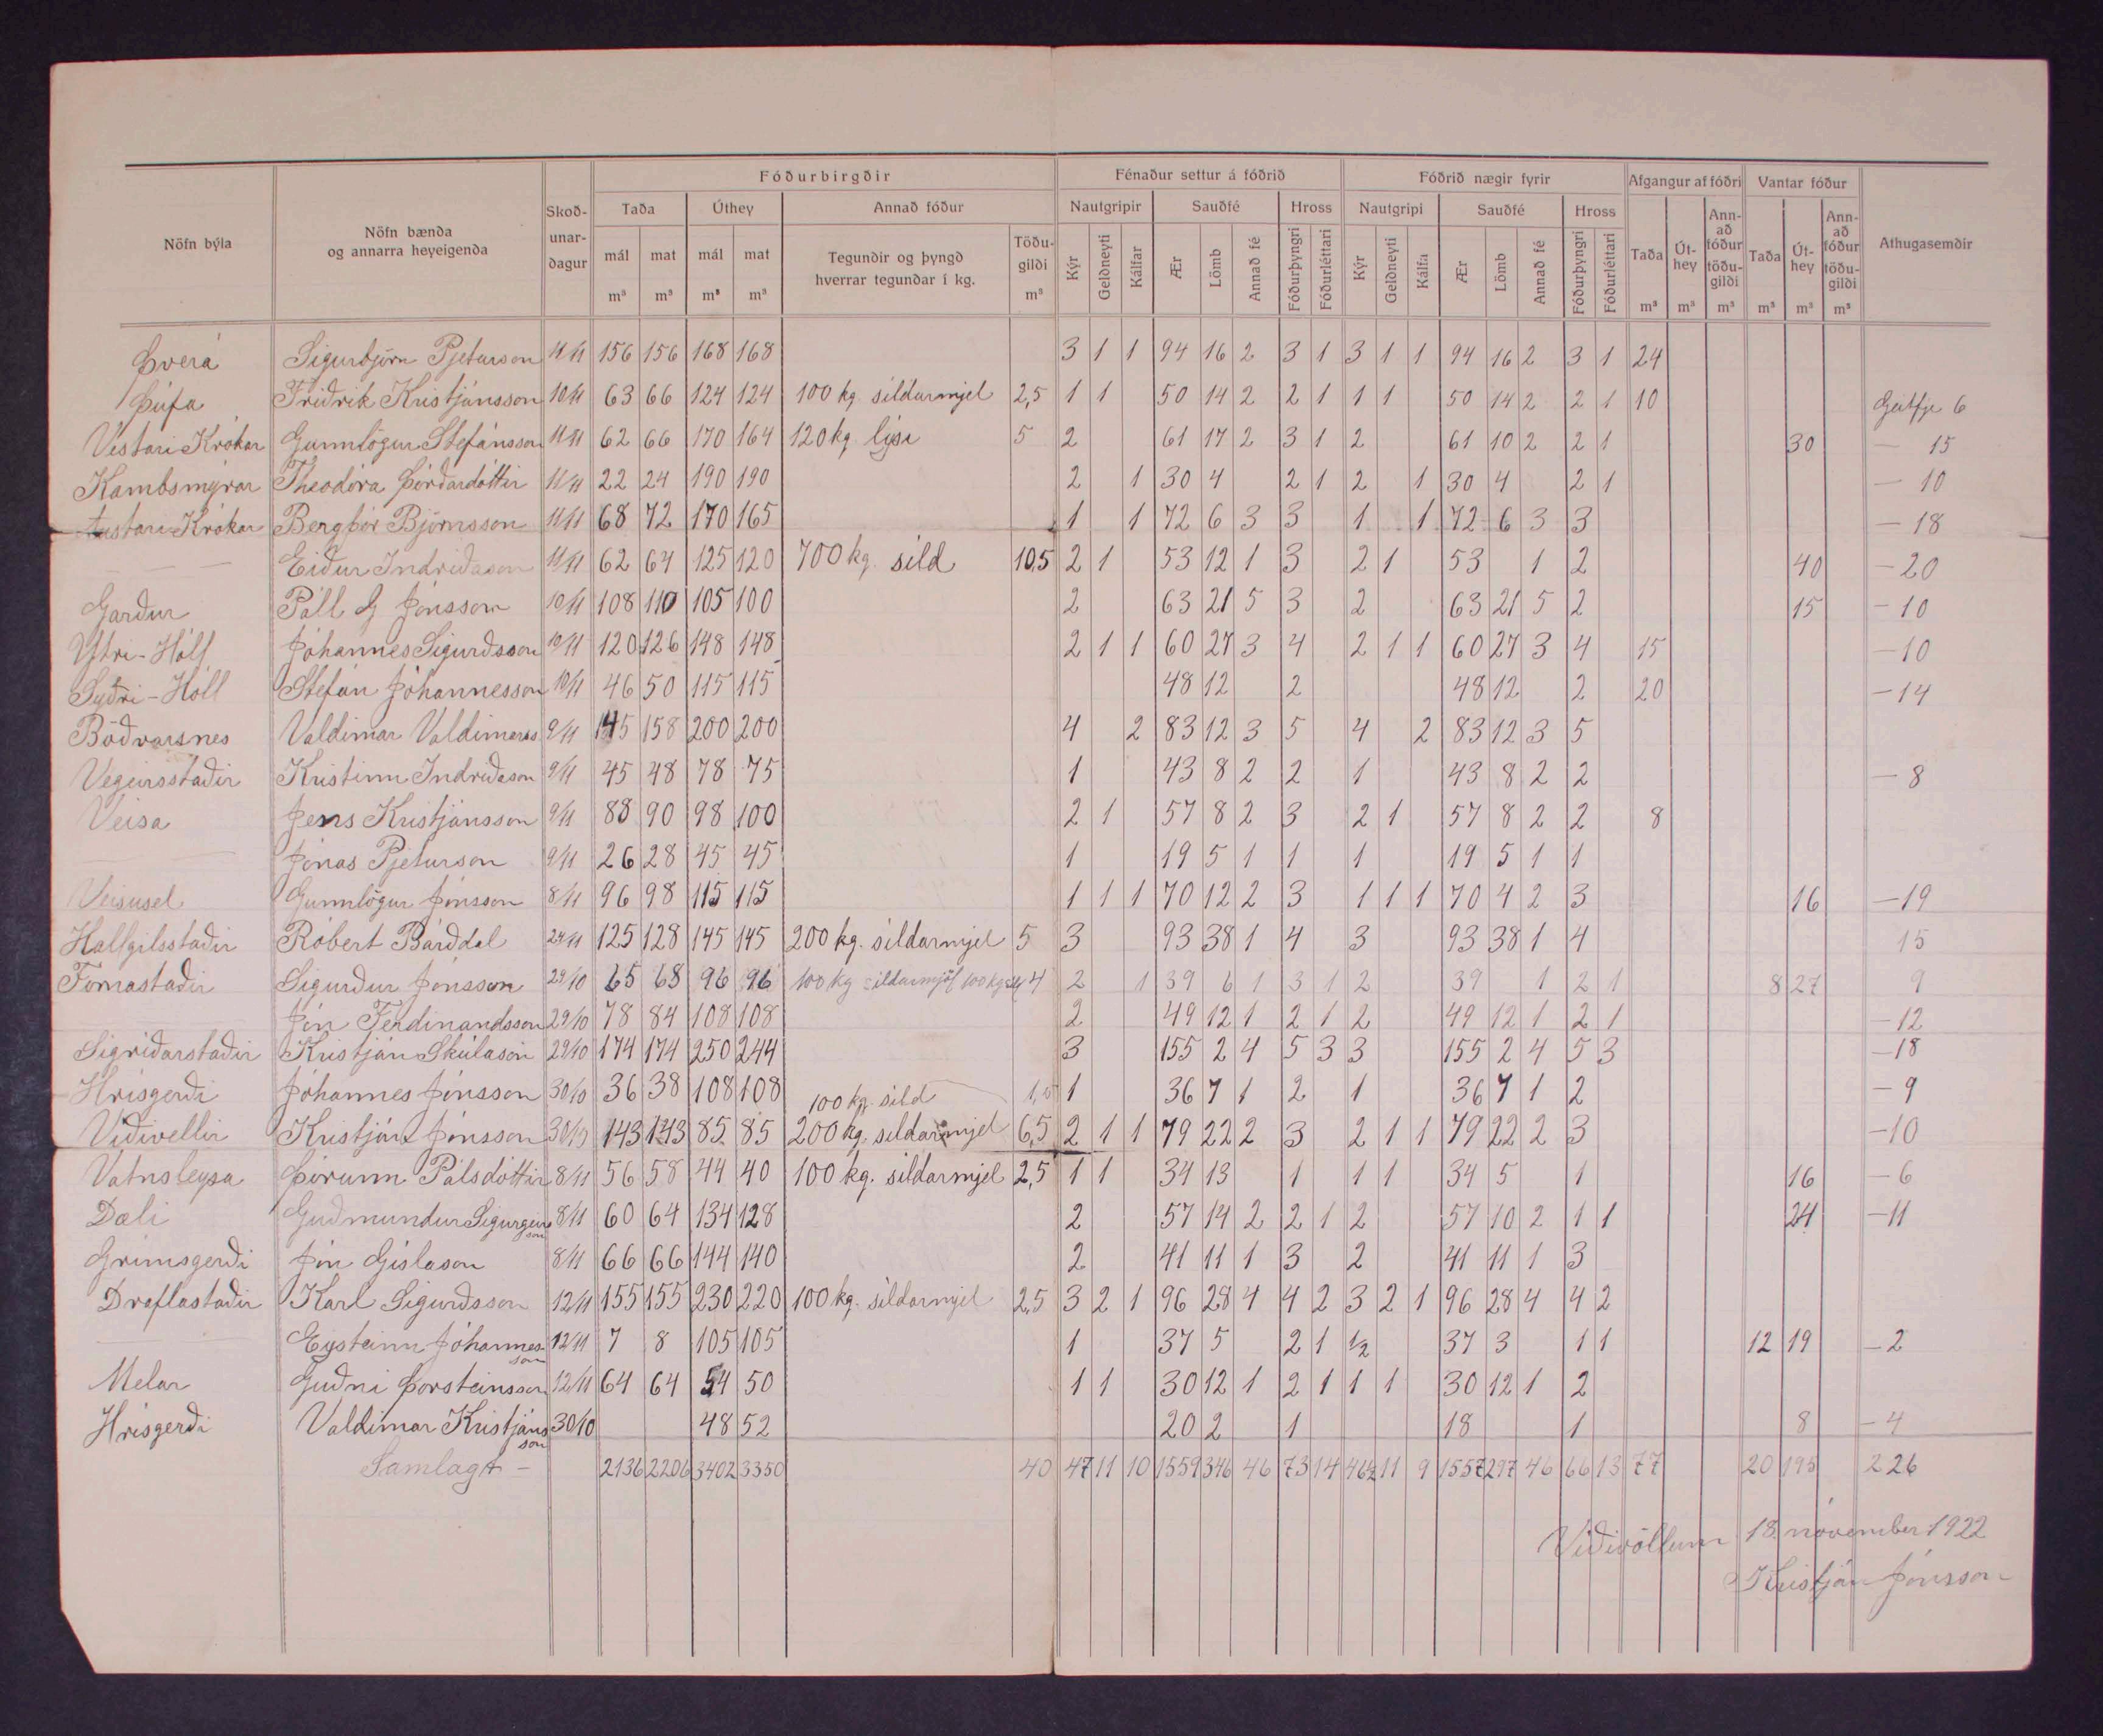 Fóðurbirgðir Fénaður settur á fóðrið Fóðrið nægir fyrir Afgangur af fóðri Vantar fóður
Nöfn býla Nöfn bænda og annarra heyeigenda Skoðunardagur Taða Úthey Annað fóður Nautgripir Sauðfé Hross Nautgripi Sauðfé Hross Taða Úthey Annað fóður töðugildi Taða Úthey Annað fóður töðugildi Athugasemdir
mál mat mál mat Tegundir og þyngd hverrar tegundar í kg. Töðugildi Kýr Geldneyti Kálfar Ær Lömb Annað fé Fóðurþyngri Fóðurléttari Kýr Geldneyti Kálfa Ær Lömb Annað fé Fóðurþyngri Fóðurléttari
m³ m³ m³ m³ m³ m³ m³ m³ m³ m³ m³
Þverá Sigurbjörn Pjeturson 11/11 156 156 168 168 3 1 1 94 16 2 3 1 3 1 1 94 16 2 3 1 24
Þúfa Friðrik Kristjánsson 10/11 63 66 124 124 100 kg. síldarmjel 2,5 1 1 50 14 2 2 1 1 1 50 14 2 2 1 10 Geitfje 6
Vestari Krókar Gunnlögur Stefánsson 11/11 62 66 170 164 120 kg. lýsi 5 2 61 17 2 3 1 2 61 10 2 2 1 30 — 15
Kambsmýrar Theodóra Þórðardóttir 11/11 22 24 190 190 2 1 30 4 2 1 2 1 30 4 2 1 — 10
Austari Krókar Bergþór Björnsson 11/11 68 72 170 165 1 1 72 6 3 3 1 1 72 6 3 3 — 18
— — Eiður Indriðason 11/11 62 64 125 120 700 kg. síld 10,5 2 1 53 12 1 3 2 1 53 1 2 40 — 20
Garður Páll G Jónsson 10/11 108 110 105 100 2 63 21 5 3 2 63 21 5 2 15 — 10
Ytri-Hóll Jóhannes Sigurðsson 10/11 120 126 148 148 2 1 1 60 27 3 4 2 1 1 60 27 3 4 15 — 10
Syðri-Hóll Stefán Jóhannesson 10/11 46 50 115 115 48 12 2 48 12 2 20 — 14
Böðvarsnes Valdimar Valdimarss 9/11 145 158 200 200 4 2 83 12 3 5 4 2 83 12 3 5
Vegeirsstaðir Kristinn Indriðason 9/11 45 48 78 75 1 43 8 2 2 1 43 8 2 2 — 8
Veisa Jens Kristjánsson 9/11 88 90 98 100 2 1 57 8 2 3 2 1 57 8 2 2 8
— Jónas Pjeturson 9/11 26 28 45 45 1 19 5 1 1 1 19 5 1 1
Veisusel Gunnlögur Jónsson 8/11 96 98 115 115 1 1 1 70 12 2 3 1 1 1 70 4 2 3 16 — 19
Hallgilsstaðir Róbert Bárðdal 24/11 125 128 145 145 200 kg. síldarmjel 5 3 93 38 1 4 3 93 38 1 4 15
Fornastaðir Sigurður Jónsson 29/10 65 68 96 96 100 kg síldarmjöl 100 kg síld 4 2 1 39 6 1 3 1 2 39 1 2 1 8 27 9
— Jón Ferdinandsson 29/10 78 84 108 108 2 49 12 1 2 1 2 49 12 1 2 1 — 12
Sigríðarstaðir Kristján Skúlason 29/10 174 174 250 244 3 155 2 4 5 3 3 155 2 4 5 3 — 18
Hrísgerði Jóhannes Jónsson 30/10 36 38 108 108 100 kg. síld 1,5 1 36 7 1 2 1 36 7 1 2 — 9
Víðivellir Kristján Jónsson 30/10 143 143 85 85 200 kg. síldarmjel 6,5 2 1 1 79 22 2 3 2 1 1 79 22 2 3 — 10
Vatnsleysa Þórunn Pálsdóttir 8/11 56 58 44 40 100 kg. síldarmjel 2,5 1 1 34 13 1 1 1 34 5 1 16 — 6
Dæli Guðmundur Sigurgeirsson 8/11 60 64 134 128 2 57 14 2 2 1 2 57 10 2 1 1 24 — 11
Grímsgerði Jón Gíslason 8/11 66 66 144 140 2 41 11 1 3 2 41 11 1 3
Draflastaðir Karl Sigurðsson 12/11 155 155 230 220 100 kg. síldarmjel 2,5 3 2 1 96 28 4 4 2 3 2 1 96 28 4 4 2
— Eysteinn Jóhannesson 12/11 7 8 105 105 1 37 5 2 1 ½ 37 3 1 1 12 19 — 2
Melar Guðni Þorsteinsson 12/11 64 64 54 50 1 1 30 12 1 2 1 1 1 30 12 1 2
Hrísgerði Valdimar Kristjánsson 30/10 48 52 20 2 1 18 1 8 — 4
Samlagt — 2136 2206 3402 3350 40 47 11 10 1559 346 46 73 14 46½ 11 9 1557 297 46 66 13 77 20 195 226
Víðivöllum 18. nóvember 1922
Kristján Jónsson